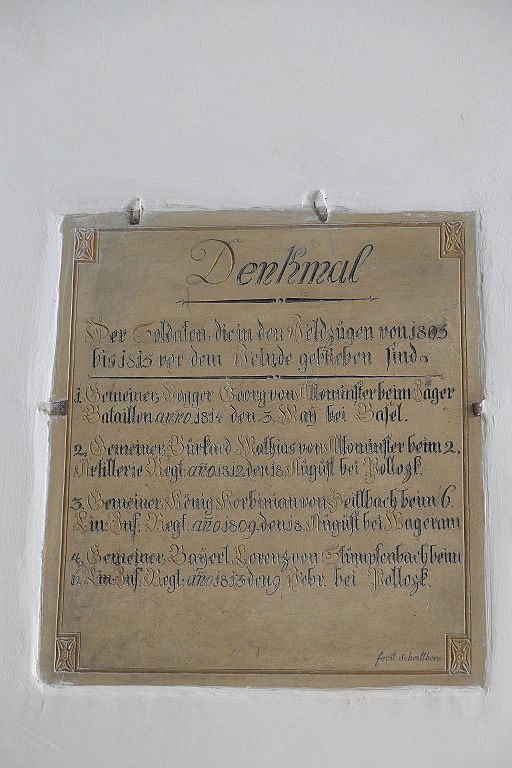 Denkmal
Der Soldaten, die in den Feldzügen von 1805
bis 1815 vor dem Feinde geblieben sind.
1. Gemeiner, Vogger Georg von Mominster beim Jäger
Bataillon anno 1814 den 3. May bei Basel.
2, Gemeiner, Burkard Mathias von Mominster beim 2.
Artillerie Regt. año. 1812 den 18. August bei Pollozk.
3. Gemeiner, König Korbinian von Zeillbach beim 6.
Lin: Inf: Regt. año 1809. den 18. August bei Wageram
4. Gemeiner, Bayerl Lorenz von Stumpfenbach beim
6. Lin: Inf: Regt. año. 1813 den 9. Febr. bei Pollozk.
fecit